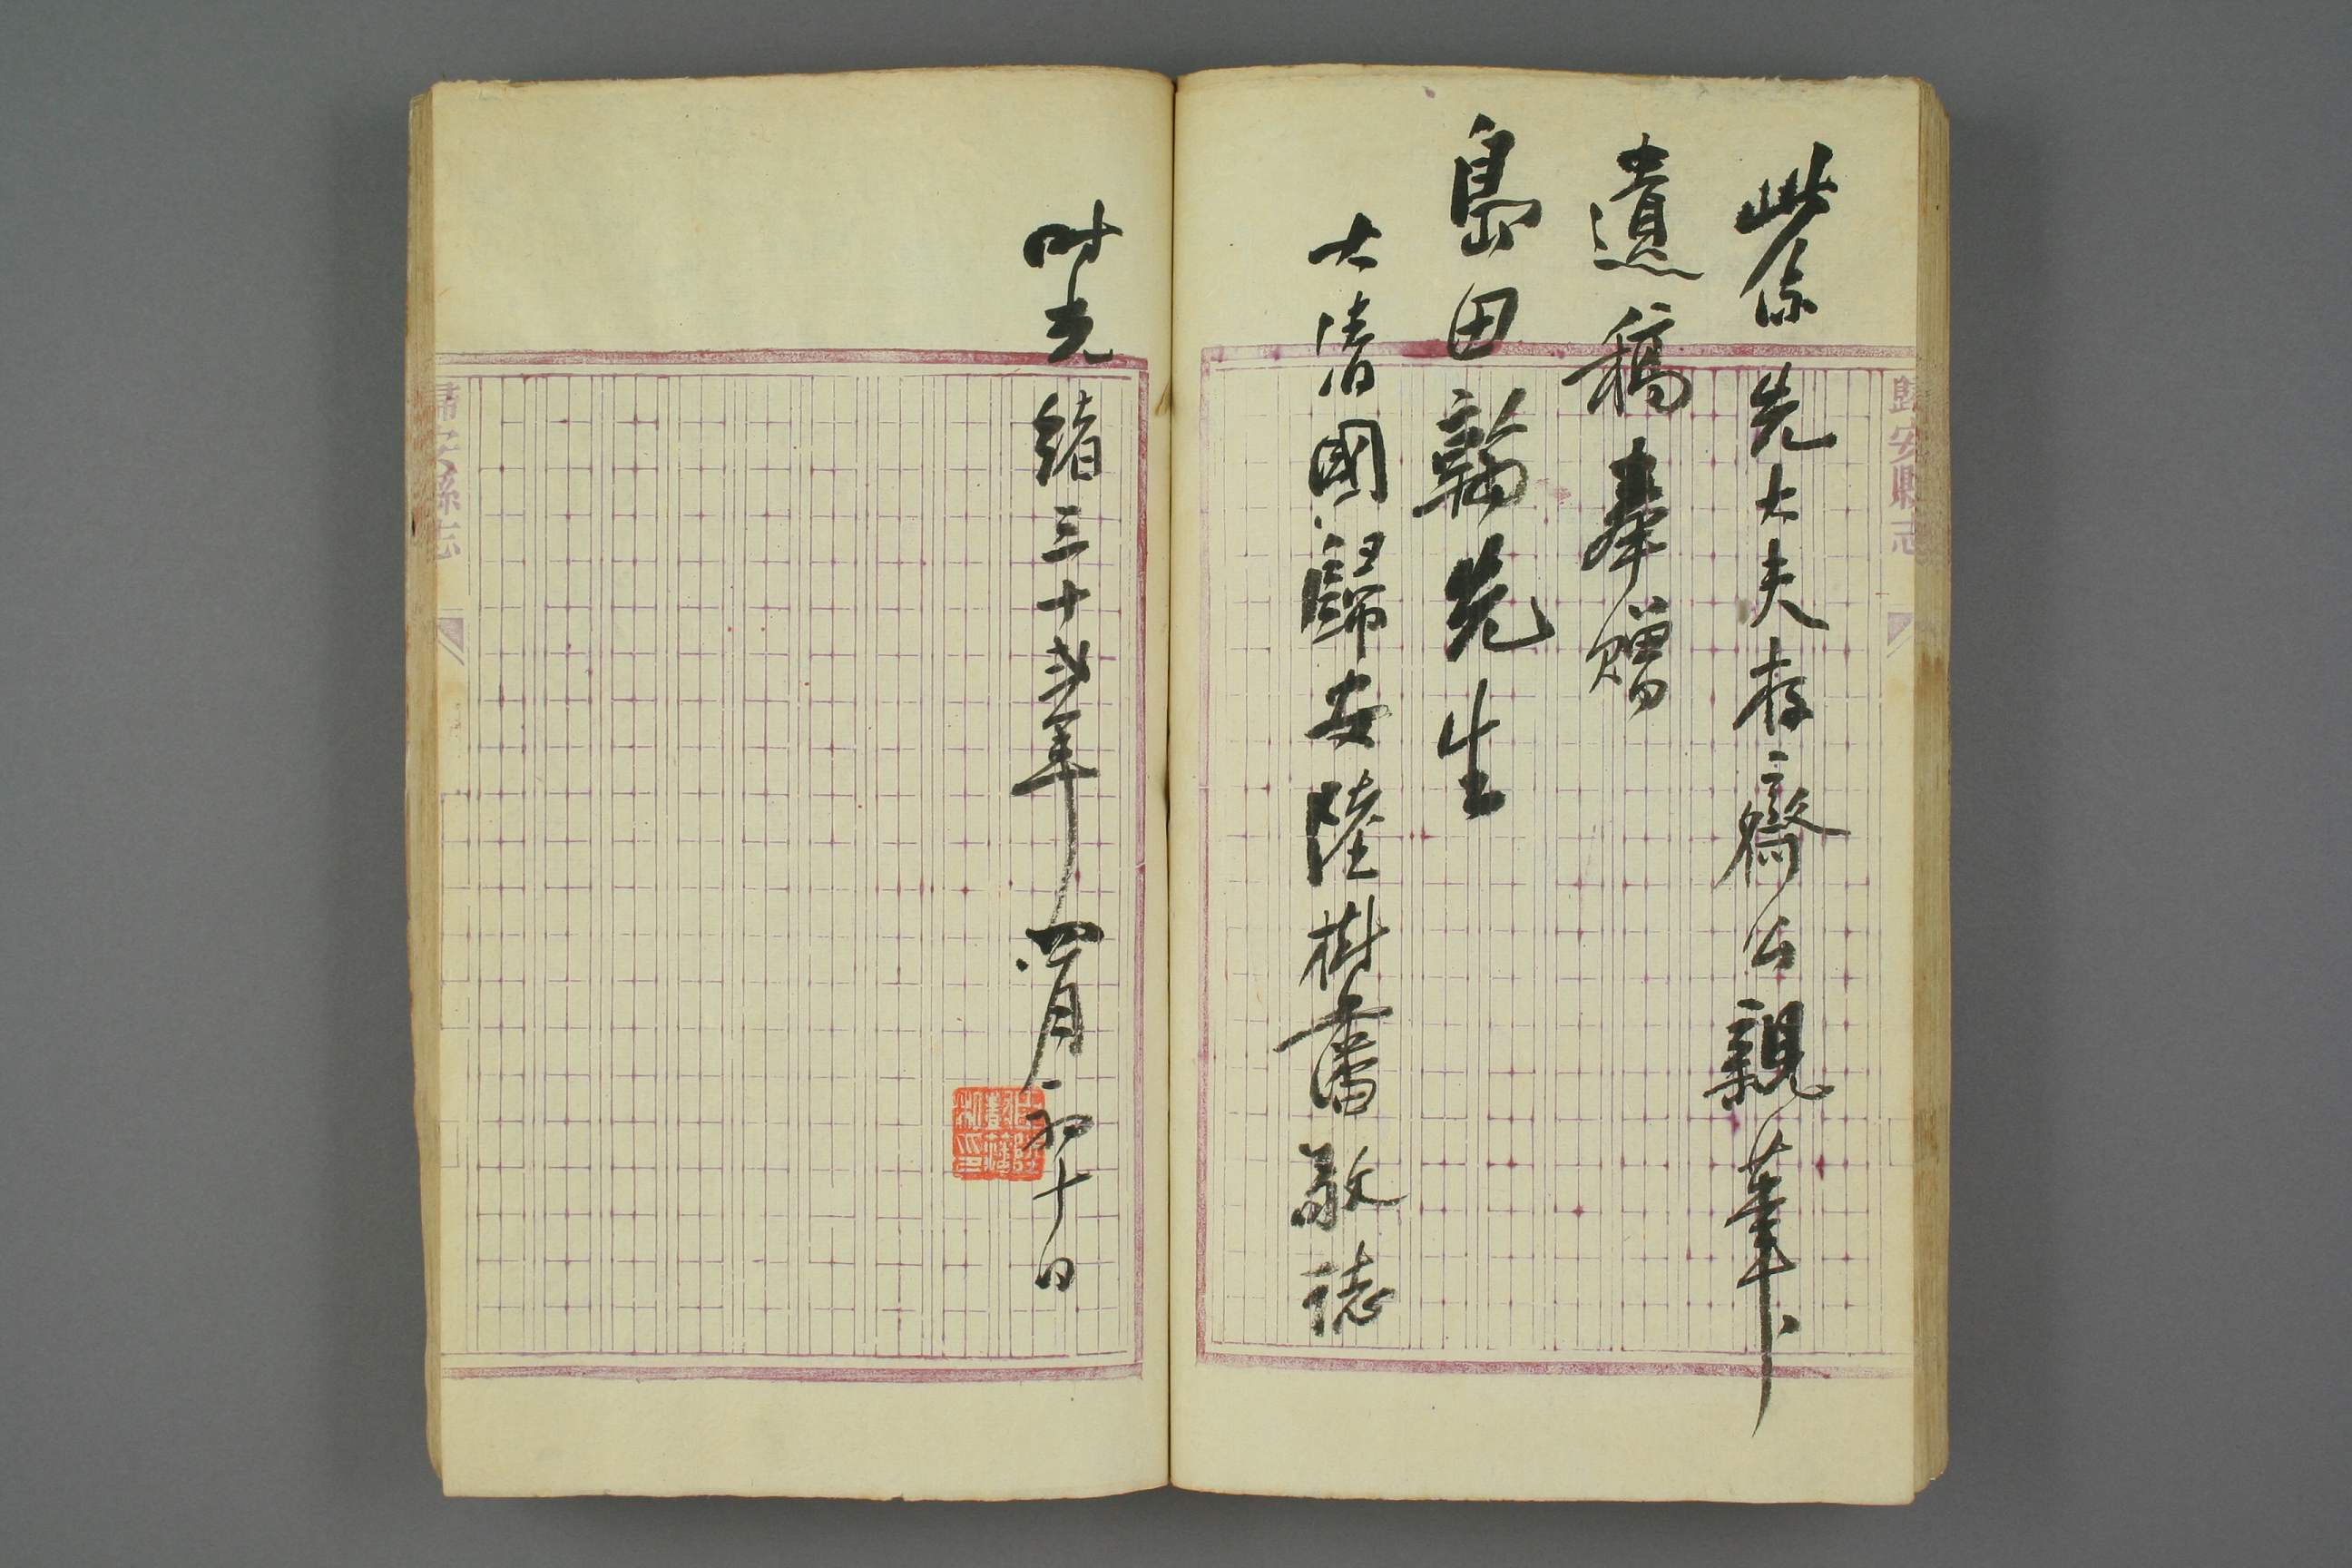 此係先大夫存齋公親筆
遺稿奉贈
島田翰先生
大清國歸安陸樹藩敬誌
時光緒三十弍年四月初十日
歸安縣志
歸安縣志